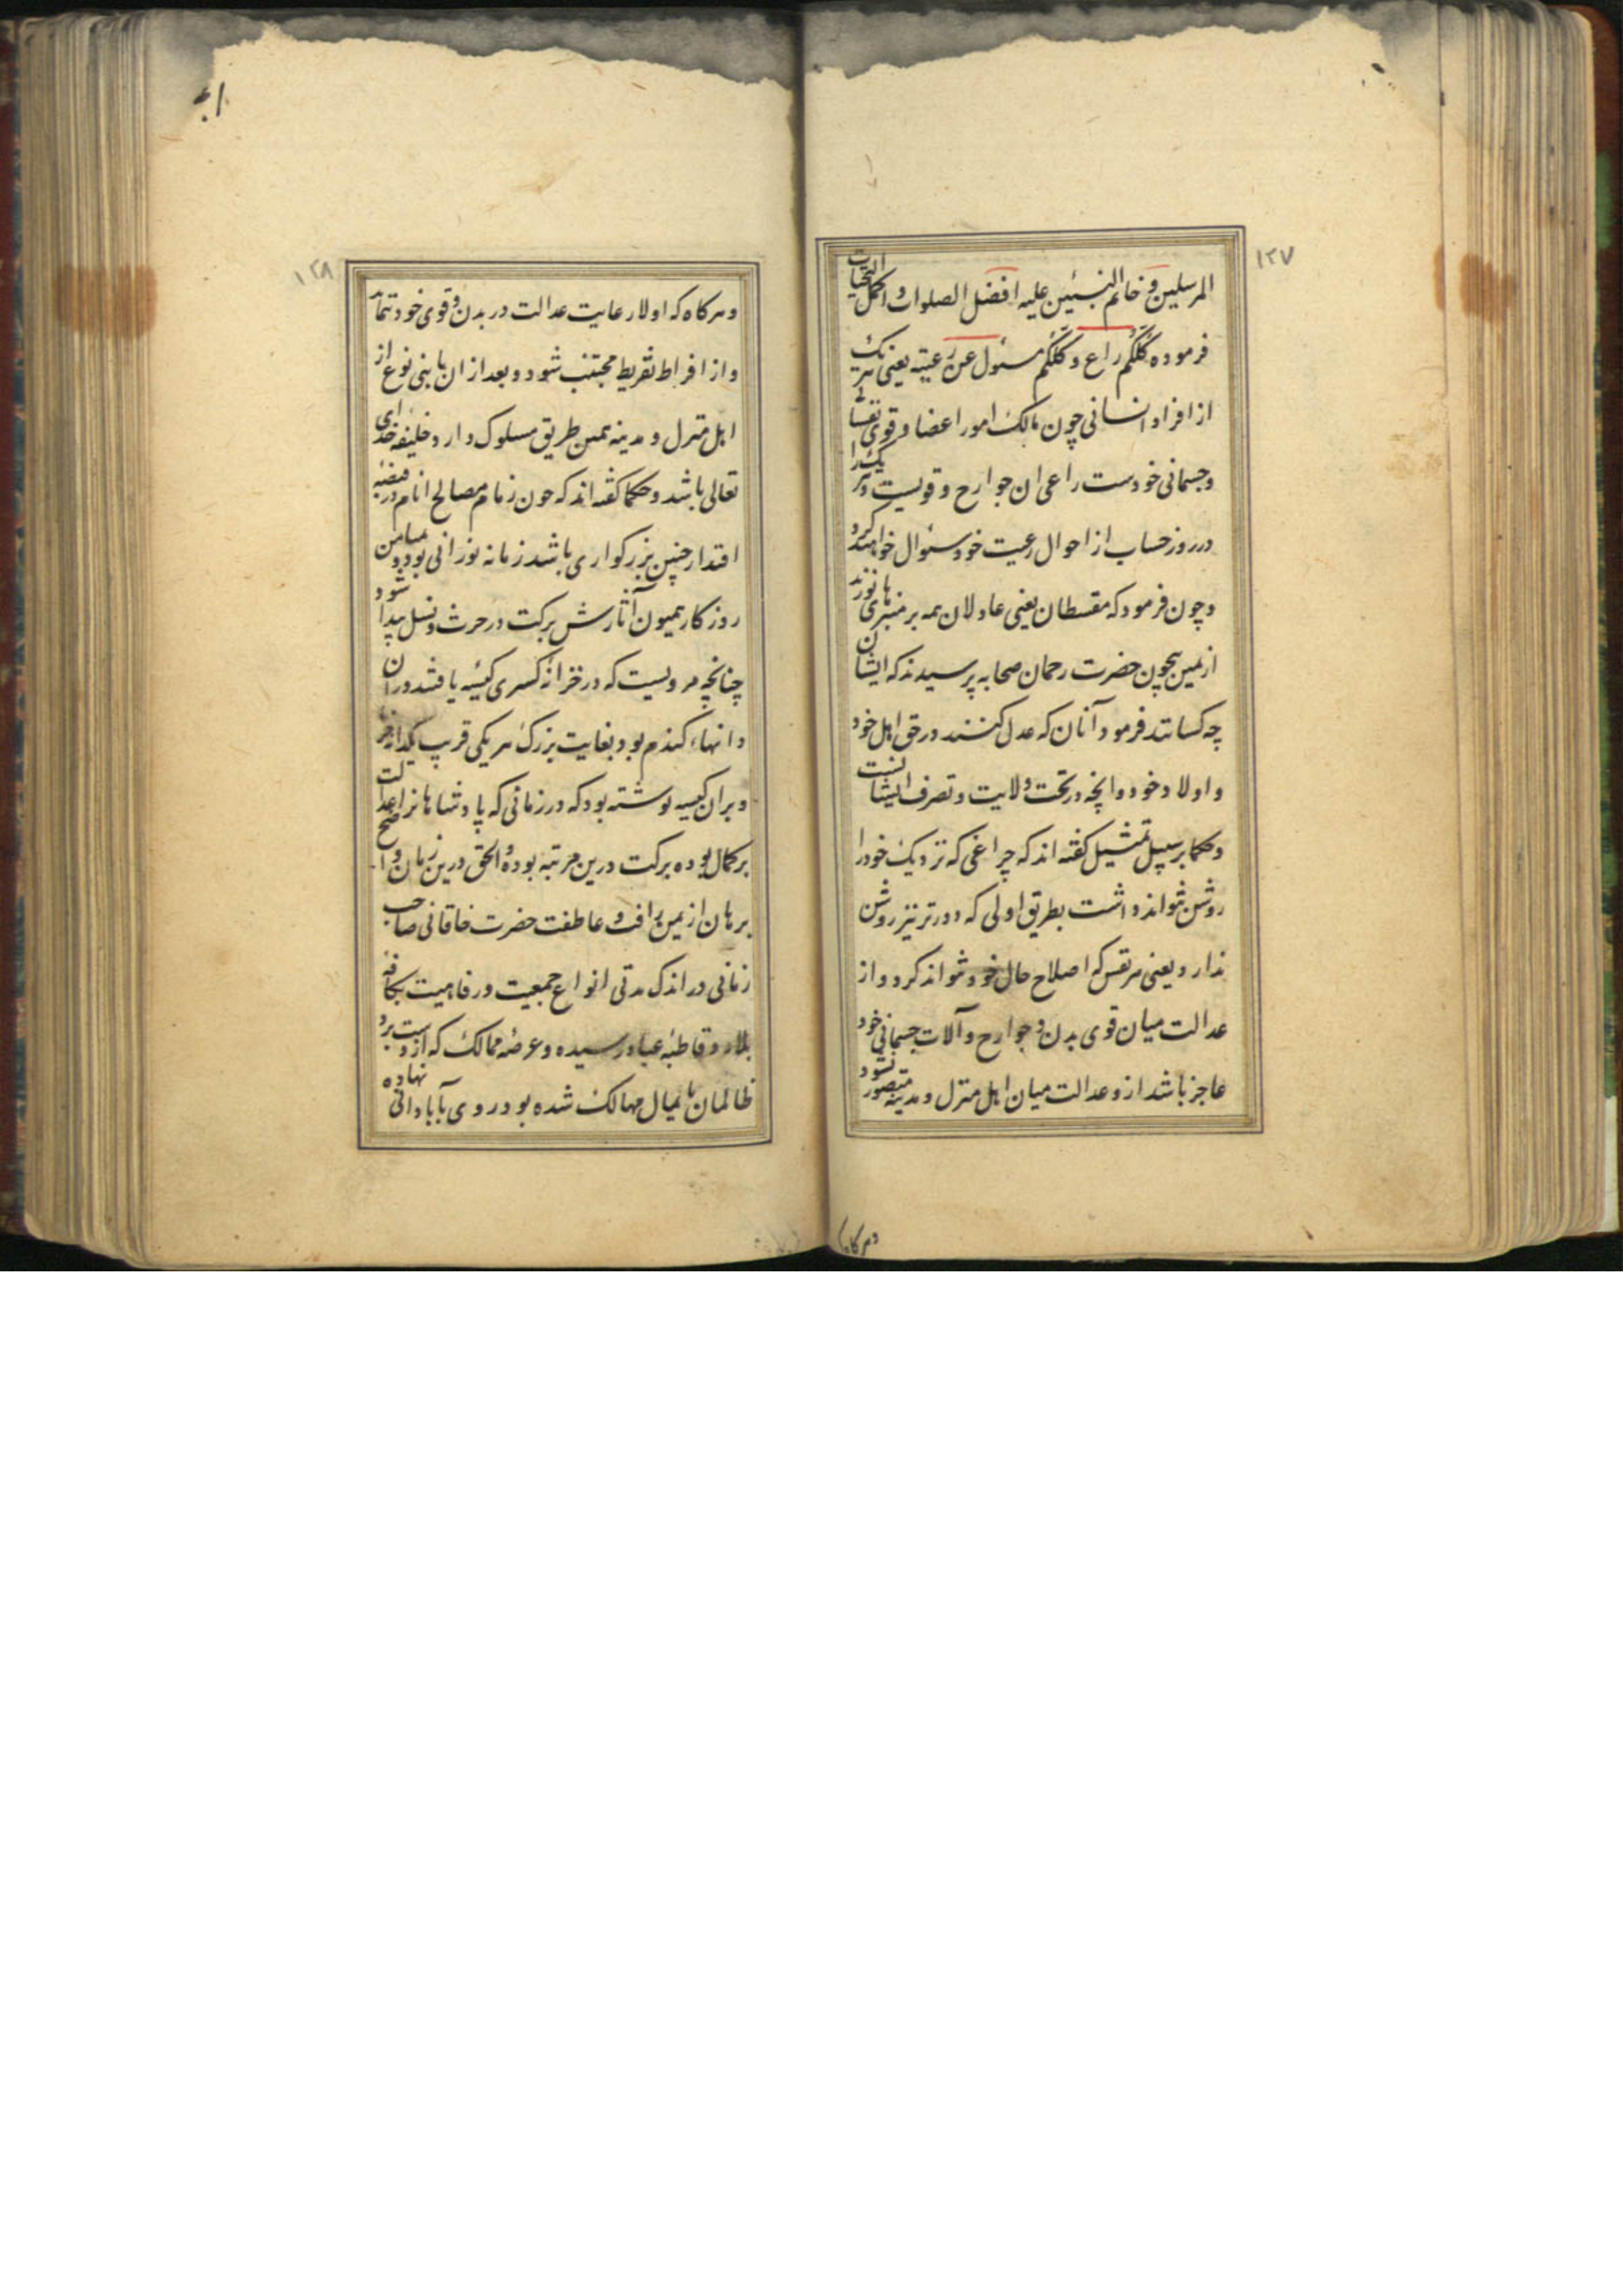 ١٢٧
المرسلین و خاتم النبیین علیه افضل الصلوات و اکمل التحیات
فرموده کُلُّکُم راع و کُلُّکُم مسئول عن رعیته یعنی هر یک
از افراد انسانی چون مالک امور اعضا و قوی نفسانی
و جسمانی خودست راعی ان جوارح و قویست و هر یک را
در روز حساب از احوال رعیت خود سئوال خواهند کرد
و چون فرمود که مقسطان یعنی عادلان همه بر منبرهای نورند
از یمین بیچون حضرت رحمان صحابه پرسیدند که ایشان
چه کسانند فرمود آنان که عدل کنند در حق اهل خود
و اولاد خود و انچه در تحت ولایت و تصرف ایشانست
و حکما بر سبیل تمثیل کفته اند که چراغی که نزدیک خود را
روشن نتواند داشت بطریق اولی که دورتر نیز روشن
ندارد یعنی هر نفس که اصلاح حال خود نتواند کرد و از
عدالت میان قوی بدن و جوارح و آلات جسمانی خود
عاجز باشد ازو عدالت میان اهل منزل و مدینه متصور نشود
وهرکاه
١٢٨
وهرکاه که اولا رعایت عدالت در بدن و قوی خود نماید
و از افراط تفریط مجتنب شود و بعد از ان با بنی نوع از
اهل منزل و مدینه همین طریق مسلوک دارد خلیفه خدای
تعالی باشد و حکما کفته اند که چون زمام مصالح انام در قبضه
اقتدار چنین بزرکواری باشد زمانه نورانی بود و میامن
روزکار همیون آثارش برکت در حرث و نسل پیدا شود
چنانچه مرویست که در خزانه کسری کیسه یافتند در ان
دانهاء کندم بود بغایت بزرک هر یکی قریب یکدانه
و بران کیسه نوشته بود که در زمانی که پادشاهانرا عدالت
برکمال بوده برکت درین مرتبه بوده والحق درین زمان
برهان از یمن رافت و عاطفت حضرت خاقانی صاحب
زمانی در اندک مدتی انواع جمعیت و رفاهیت بکافه
بلاد و قاطبه عباد رسیده و عرصه ممالک که از دست برد
ظالمان پایمال مهالک شده بود روی بآبادانی نهاده